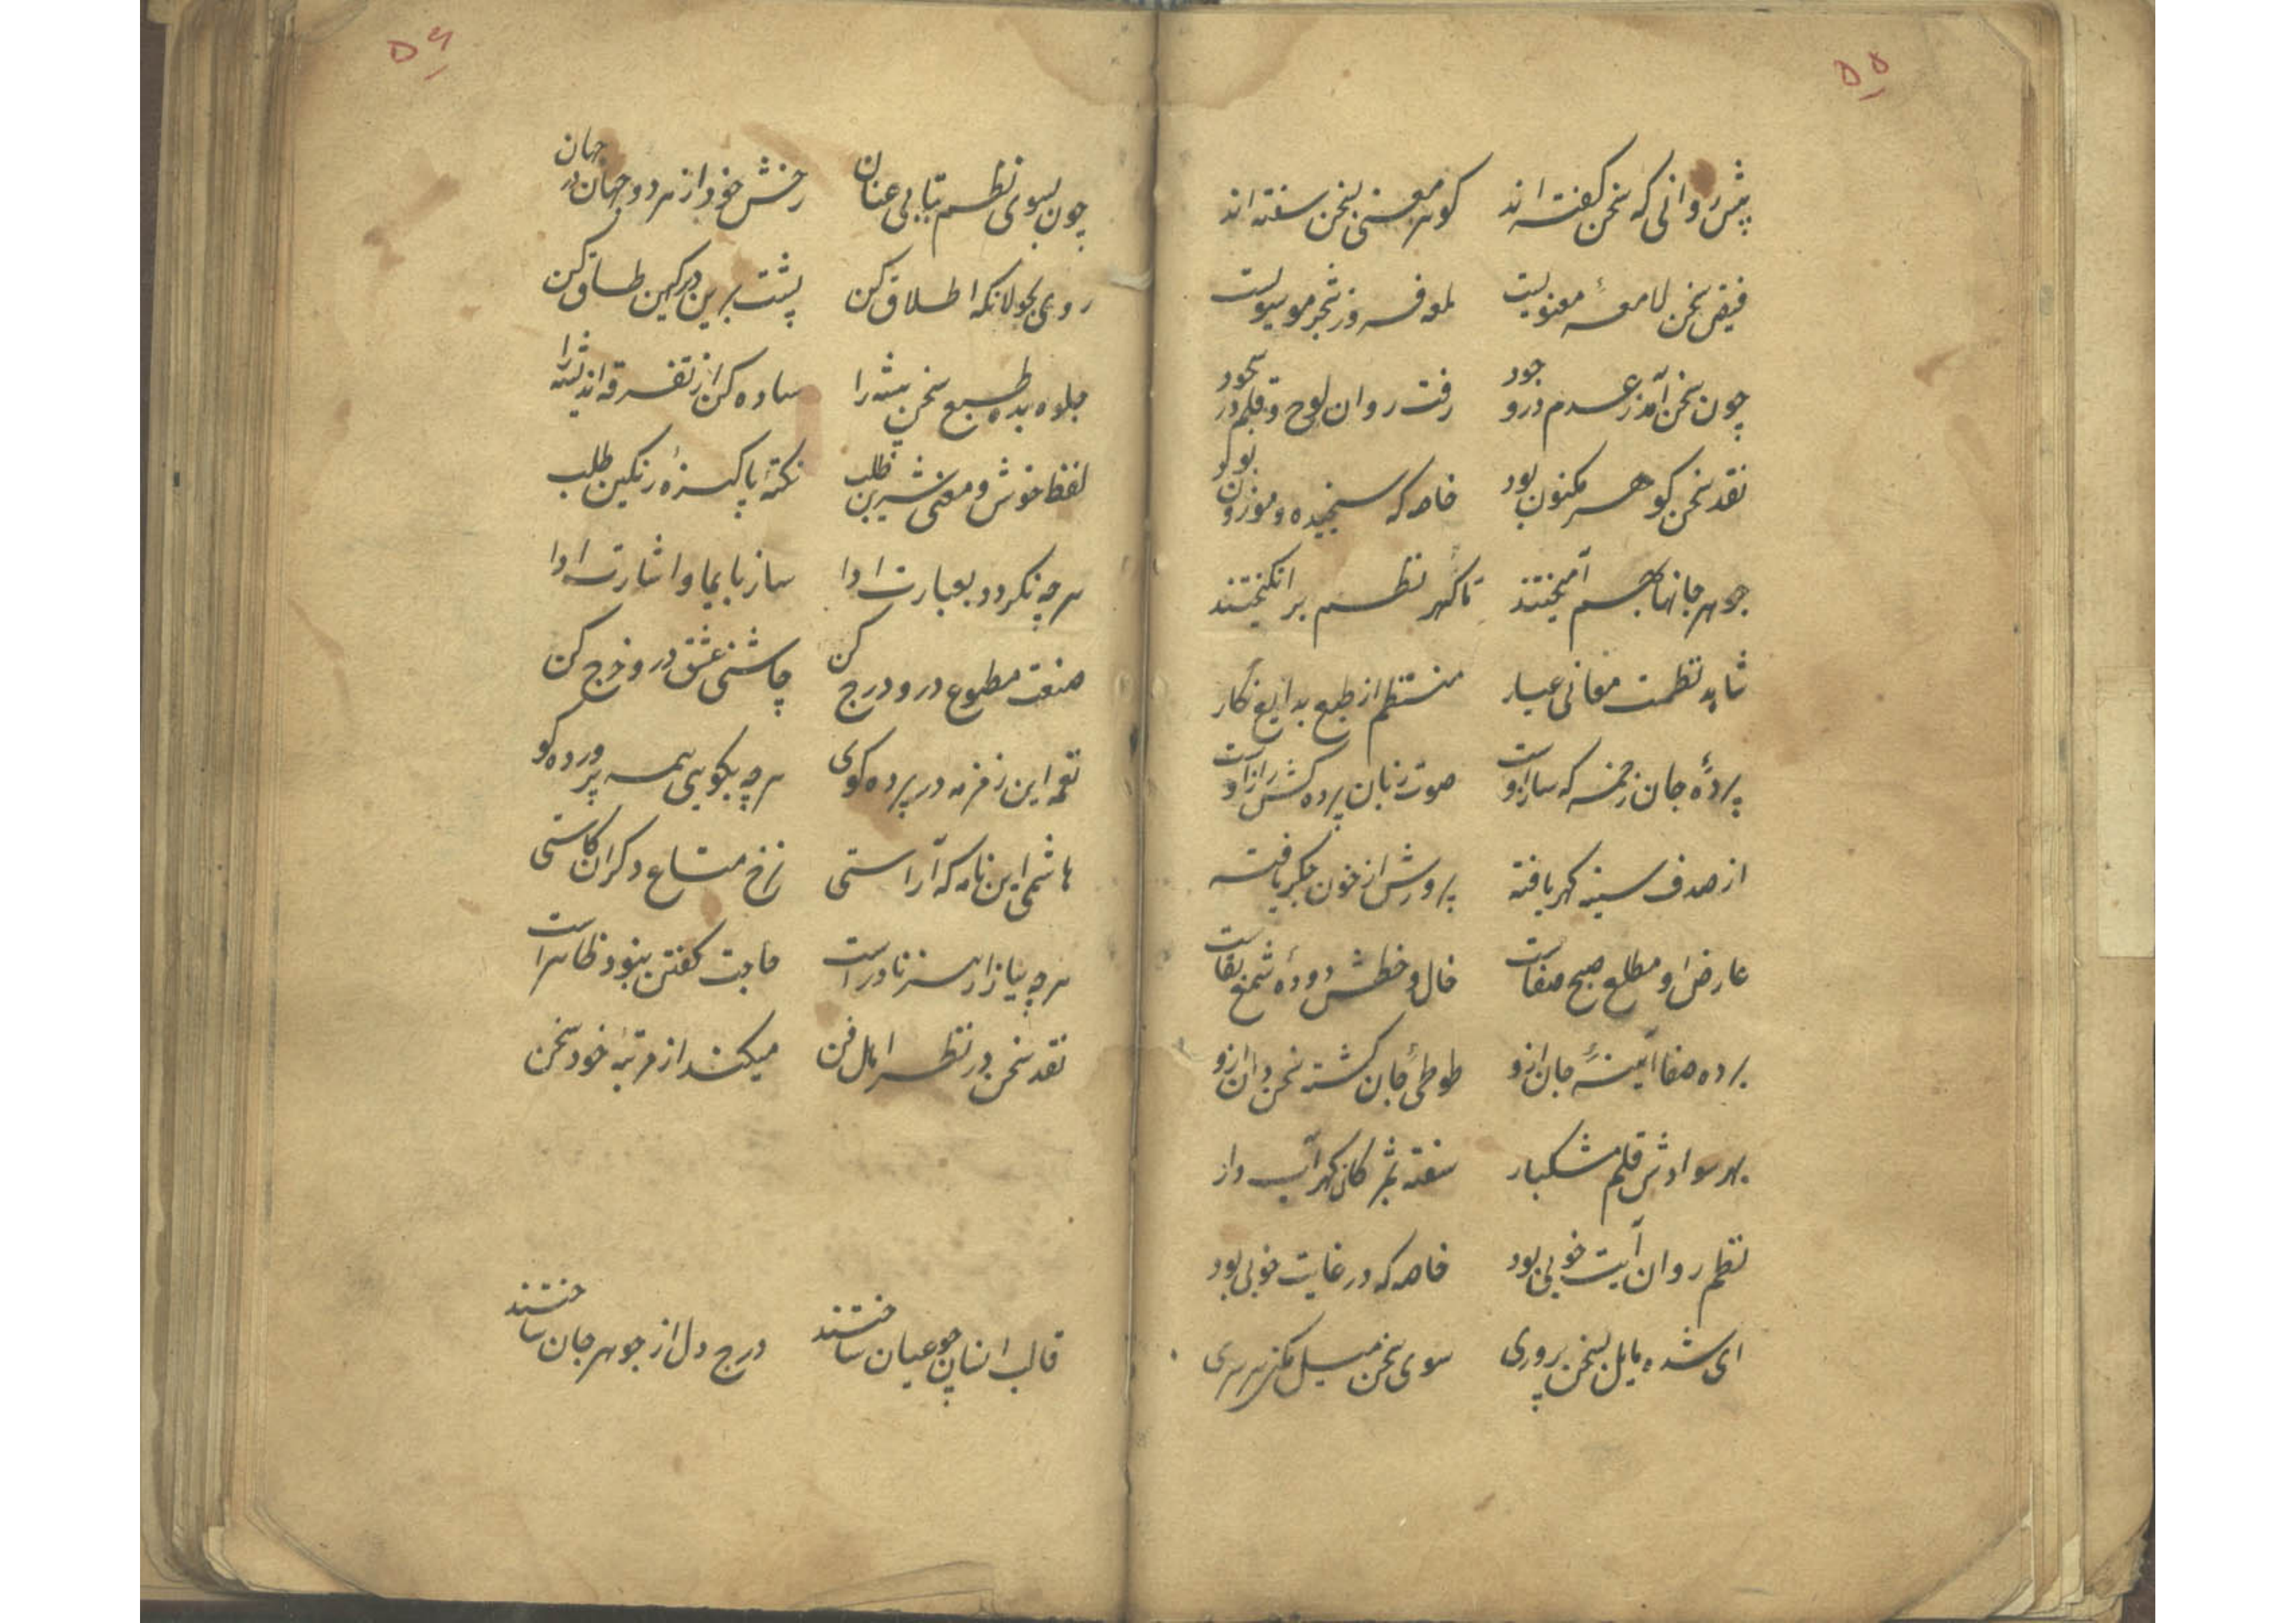 ۵۵
پیش روانی که سخن گفته اند گوهر معنی بسخن سفته اند
فیض سخن لامعهٔ معنویست لمعه فروز شجر موسویست
چون سخن آمد ز عدم در وجود رفت روان لوح و قلم در سجود
نقد سخن گوهر مکنون بود خاصه که سنجیده و موزون بود
جوهر جانها بهم آمیختند تا گهر نظم برانگیختند
شاهد نظمست معانی عیار منتظم از طبع بدایع نگار
پردهٔ جان زخمه که ساز اوست صوت زبان پرده کش راز اوست
از صدف سینه گهر یافته پرورش از خون جگر یافته
عارض او مطلع صبح صفاست خال و خطش دودهٔ شمع بقاست
برده صفا آیینهٔ جان ازو طوطیٔ جان گشته سخن دان ازو
بهر سوادش قلم مشکبار سفته بمژگان گهر آب دار
نظم روان آیت خوبی بود خاصه که در غایت خوبی بود
ای شده مایل بسخن پروری سوی سخن میل مکن سرسری
۵۶
چون بسوی نظم بتابی عنان رخش خود از هر دو جهان در جهان
روی بجولانگه اطلاق کن پشت برین دیر کهن طاق کن
جلوه بده طبع سخن پیشه را ساده کن از تفرقه اندیشه را
لفظ خوش و معنی شیرین طلب نکتهٔ پاکیزهٔ رنگین طلب
هر چه نگردد بعبارت ادا ساز بایما و اشارت ادا
صنعت مطبوع درو درج کن چاشنی عشق درو خرج کن
نغمه این زمزمه در پرده گوی هر چه بگویی همه پرورده گو
هاشمی این نامه که آراستی نرخ متاع دگران کاستی
هر چه نیاز از هنر نادر است حاجت گفتن نبود ظاهر است
نقد سخن در نظر اهل فن میکند از مرتبهٔ خود سخن
قالب انسان چو عیان ساختند درج دل از جوهر جان ساختند